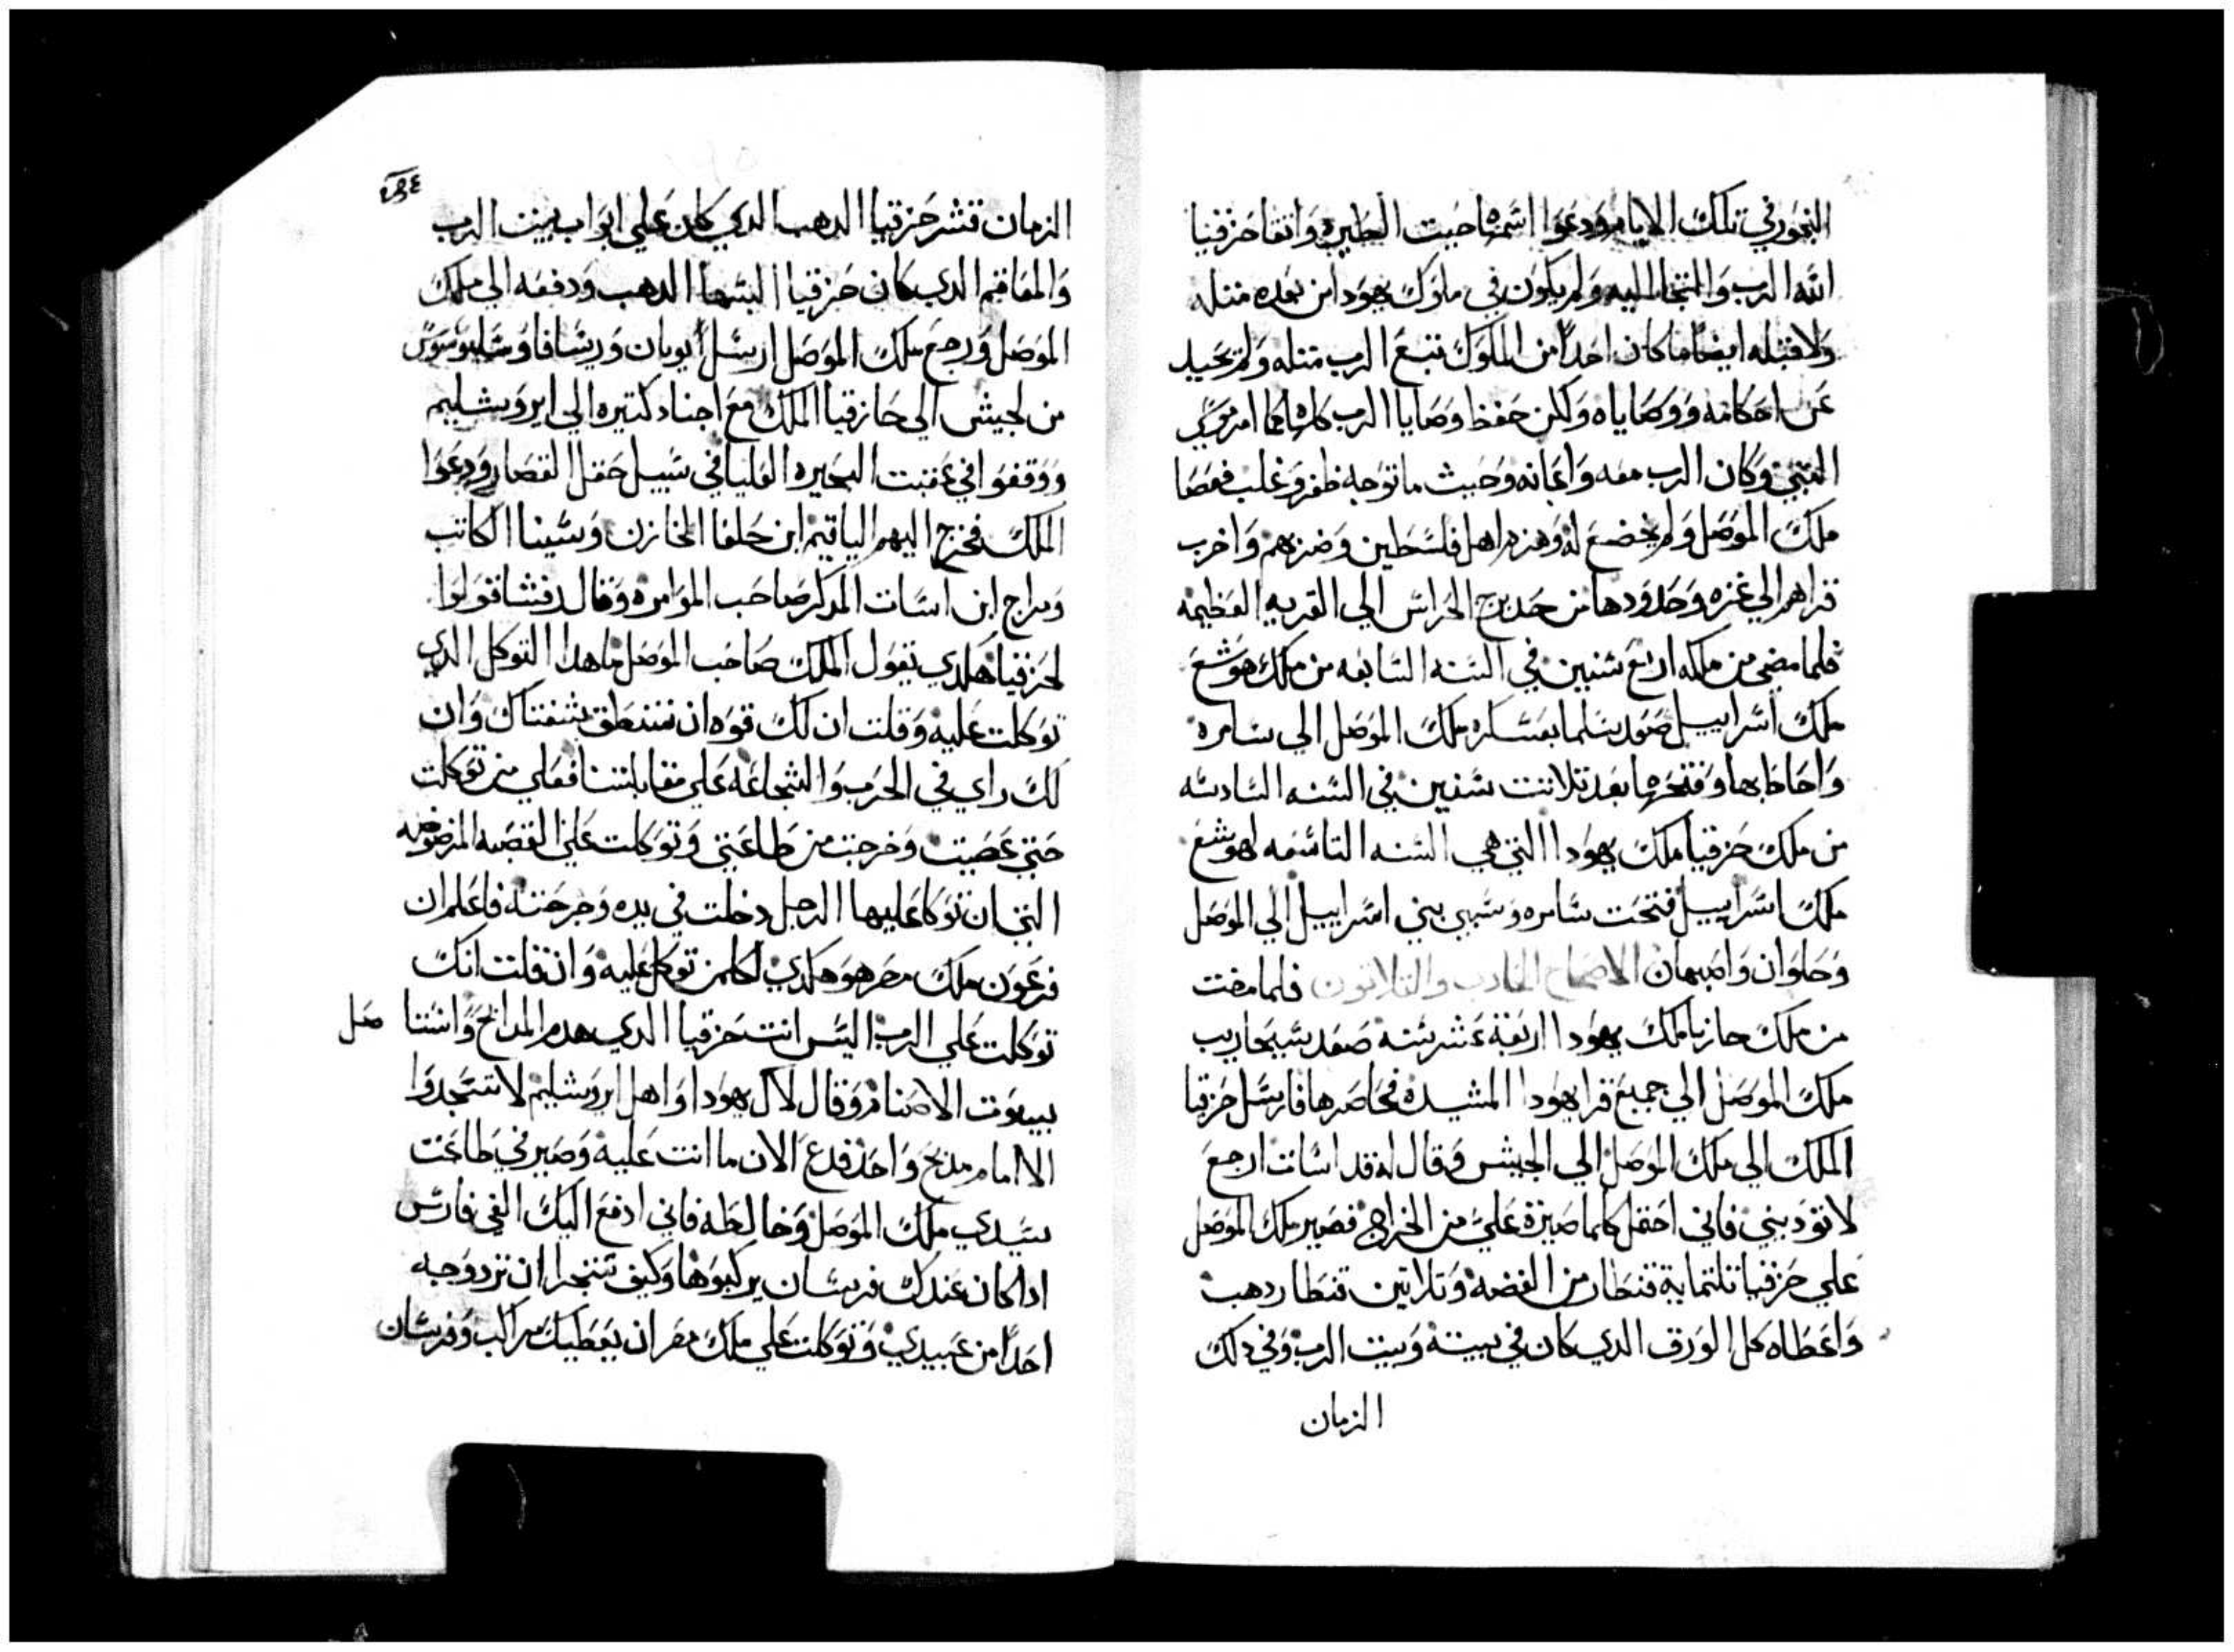 البخور في تلك الايام ودعوا اسمها حيت الخطيره واتقا حزقيا
الله الرب والتجا اليه ولم يكون في ملوك يهودا من بعده متله
ولا قبله ايضا ما كان احدا من الملوك تبع الرب متله ولم يحيد
عن احكامه ووصاياه ولكن حفظ وصايا الرب كلها كما امر موسي
النبي وكان الرب معه واعانه وحيث ما توجه ظفر وغلب فعصا
ملك الموصل ولم يخضع له وهزم اهل فلسطين وضربهم واخرب
قراهم الي غزه وحدودها من حد برج الحراس الي القريه العظيمه
فلما مضي من ملكه اربع سنين في السنه السابعه من ملك هوشع
ملك اسراييل صعد سلما بعسكره ملك الموصل الي سامره
واحاط بها وفتحها بعد تلاتت سنين في السنه السادسه
من ملك حزقيا ملك يهودا التي هي السنه التاسعه لهوشع
ملك اسراييل فتحت سامره وسبي بني اسراييل الي الموصل
وحلوان واصبهان الاصحاح الحادي والتلاتون فلما مضت
من ملك حازيا ملك يهودا اربعة عشر سنه صعد سنحاريب
ملك الموصل الي جميع قرا يهودا المشيده فحاصرها فارسل حزقيا
الملك الي ملك الموصل الي الجيش وقال له قد اسات ارجع
لا توديني فاني احتمل كلما صيرة علي من الخراج فصير ملك الموصل
علي حزقيا تلتماية قنطار من الفضه وتلاتين قنطار دهب
واعطاه كل الورق الدي كان في بيته وبيت الرب وفي دلك
الزمان
الزمان قشر حزقيا الدهب الدي كان علي ابواب بيت الرب
والمعاقم الدي كان حزقيا البسها الدهب ودفعه الي ملك
الموصل ورجع ملك الموصل ارسل
من لجيش الي حازقيا الملك مع اجناد كتيره الي ايروشليم
ووقفوا في عقبت البحيره العليا في سبيل حقل القصار ودعوا
الملك فخرج اليهم الياقيم ابن حلفا الخازن وسينا الكاتب
ويواح ابن اسات المدكر صاحب الموامره وقال لرفشا قولوا
لحزقيا هكدي يقول الملك صاحب الموصل ما هدا التوكل الدي
توكلت عليه وقلت ان لك قوه ان تنطق بشفتاك وان
لك راي في الحرب والشجاعه علي مقابلتنا فعلي من توكلت
حتي عصيت وخرجت من طاعتي وتوكلت علي القصبه المرضوضه
التي ان توكا عليها الرجل دخلت في يده وجرحته فاعلم ان
فرعون ملك مصر هو هكدي لكلمن توكل عليه وان قلت انك
توكلت علي الرب اليس انت حزقيا الدي هدم المدابح واستاصل
بيوت الاصنام وقال لال يهودا واهل ايروشليم لا تسجدوا
الا امام مدبح واحد فدع الان ما انت عليه وصير في طاعت
سيدي ملك الموصل وخالطه فاني ادفع اليك الفي فارس
ادا كان عندك فرسان يركبوها وكيف تتجرا ان ترد وجه
احدا من عبيدي وتوكلت علي ملك مصر ان يعطيك مراكب وفرسان